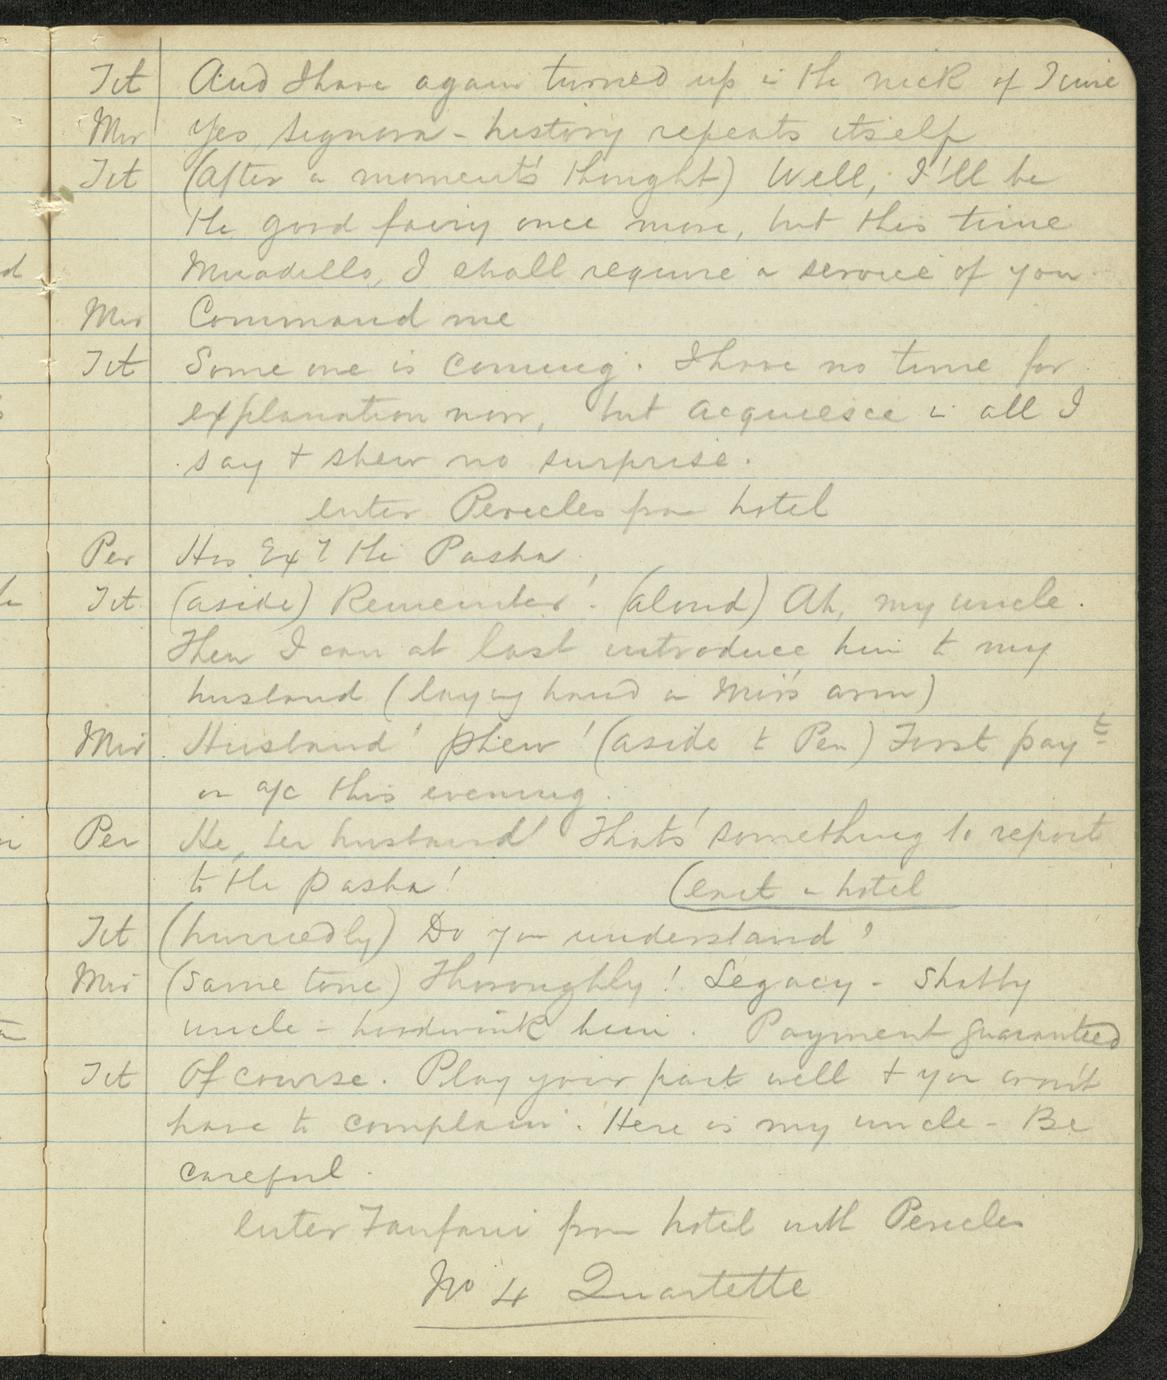 Tit And I have again turned up in the nick of Time
Mir Yes, Signora - history repeats itself
Tit (after a moment's thought) Well, I'll be
the good fairy once more, but this time
Miradillo, I shall require a service of you
Mir Command me
Tit Some one is coming. I have no time for
explanation now, but acquiesce in all I
say & shew no surprise.
enter Pericles from hotel
Per His Exy the Pasha
Tit (aside) Remember! (aloud) Ah, my uncle.
Then I can at last introduce him to my
husband (laying hand on Mir's arm)
Mir Husband! phew! (aside to Per) First payt
on a/c this evening.
Per He, her husband! That's something to report
to the pasha! (exit in hotel
Tit (hurriedly) Do you understand?
Mir (same tone) Thoroughly! Legacy - shabby
uncle - hoodwink him. Payment guaranteed
Tit Of course. Play your part well & you won't
have to complain. Here is my uncle - Be
careful.
enter Fanfani from hotel with Pericles
No 4 Quartette